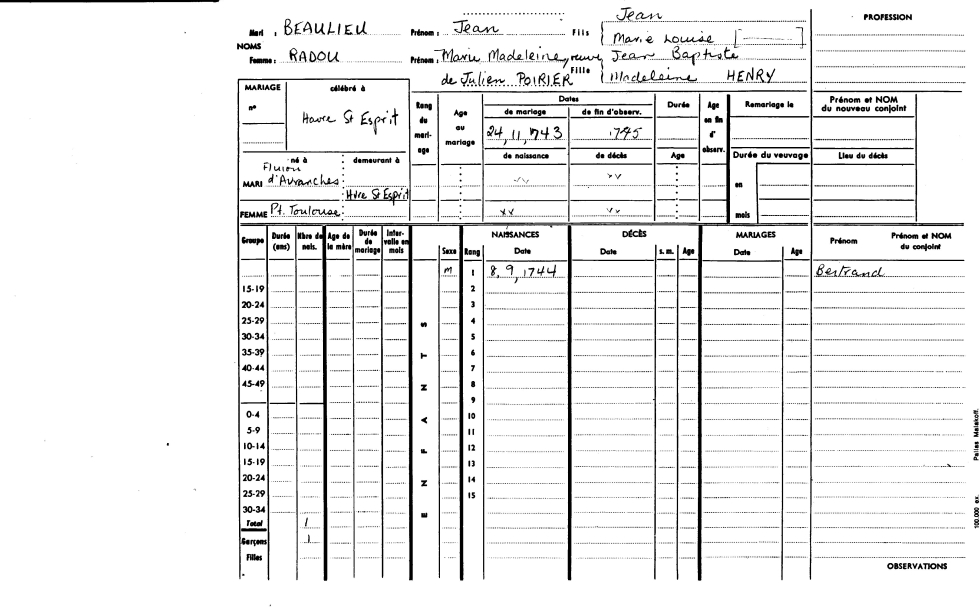 Jean
PROFESSION
Mari : BEAULIEU Prénom : Jean Fils Marie Louise [ ]
NOMS
Femme : RADOU Prénom : Marie Madeleine, veuve Jean Baptiste
de Julien POIRIER Fille Madeleine HENRY
MARIAGE célébré à Rang du mariage Age au mariage Dates Durée Age en fin d' observ. Remariage le Prénom et NOM du nouveau conjoint
n° Havre St Esprit de mariage de fin d'observ.
24, 11, 1743 1745
de naissance de décès Age Durée du veuvage Lieu du décès
né à demeurant à
MARI d'Avranches xx xx en
Hvre St Esprit
FEMME Pt. Toulouse xx xx mois
Groupe Durée (ans) Nbre de nais. Age de la mère Durée de mariage Inter-valle en mois Sexe Rang NAISSANCES Date DÉCÈS Date s. m. Age MARIAGES Date Age Prénom Prénom et NOM du conjoint
M 1 8, 9, 1744 Bertrand
15-19 2
20-24 3
25-29 4
30-34 5
35-39 6
40-44 7
45-49 8
9
0-4 10
5-9 11
10-14 12
15-19 13
20-24 14
25-29 15
30-34
ENFANTS
Total 1
Garçons 1
Filles
OBSERVATIONS
100.000 ex. Pallas Malakoff.